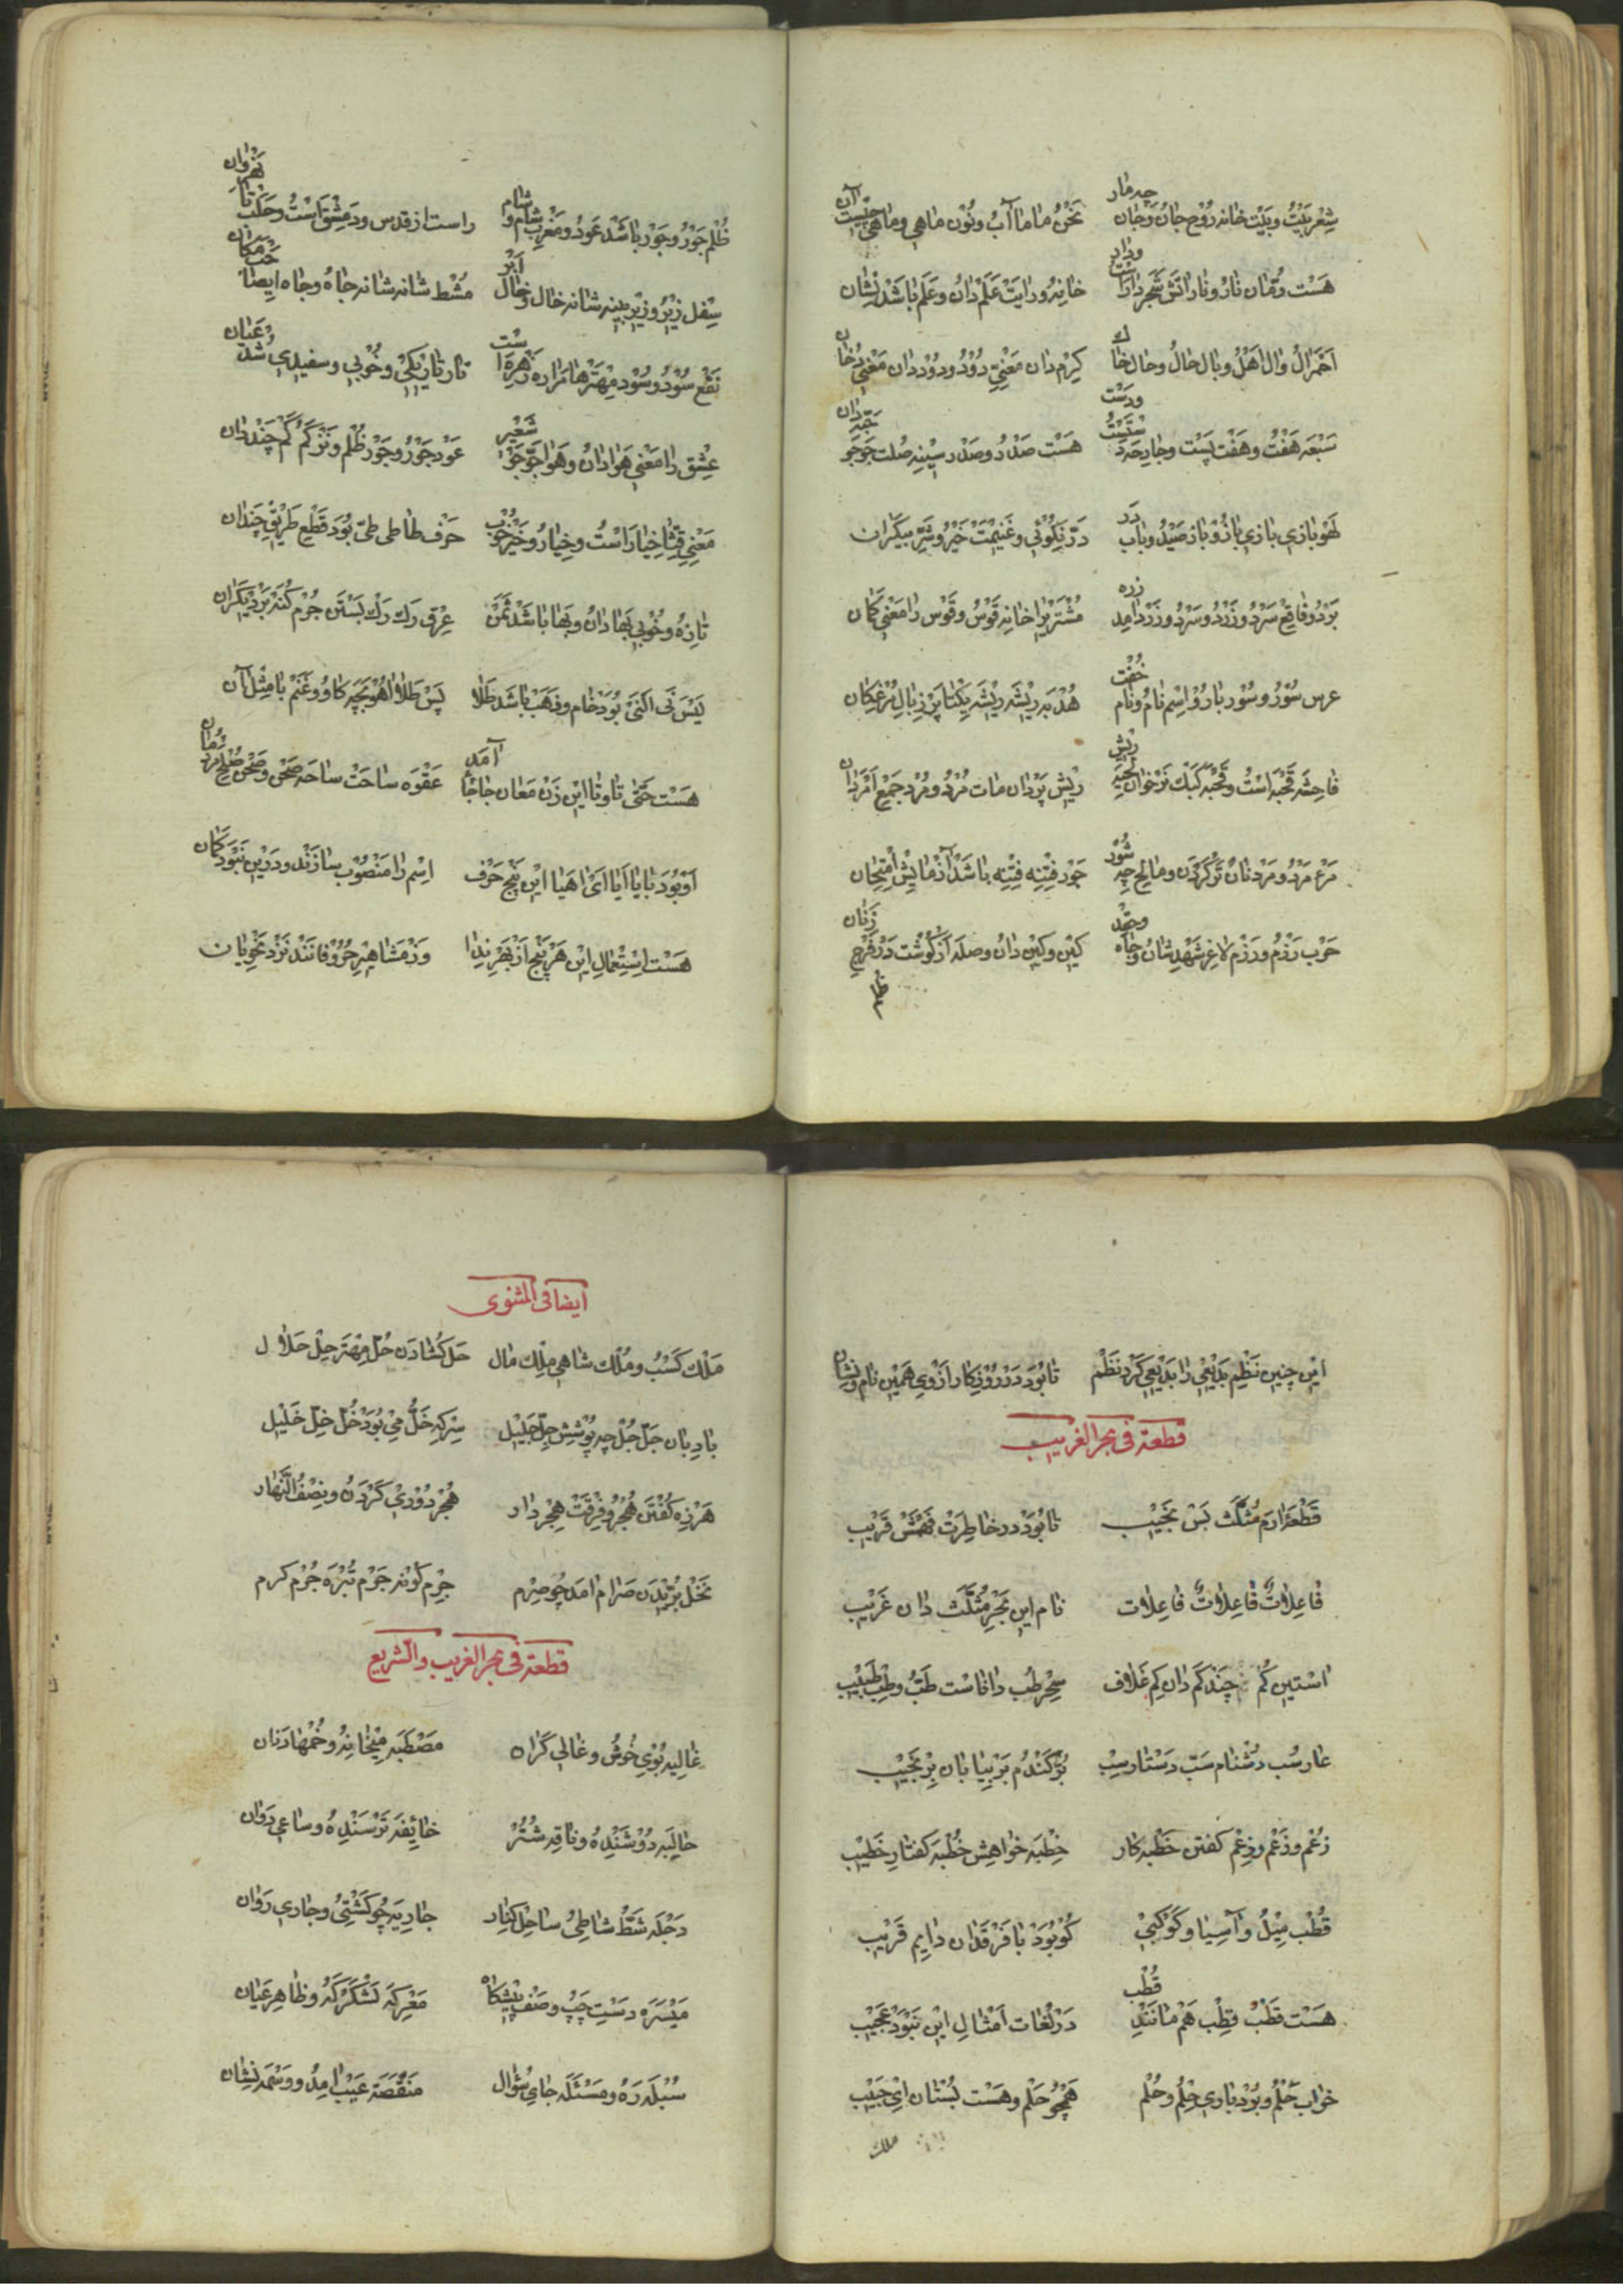 شِعْر بَيْتُ وبَيْت خانه رُوْح جانُ وَجان چه مار نَحْنُ ماما آبُ ونُوْن ماهي وماهي چيست آن
هَسْت رُمّان نارُ ونار اتش شَجَر دارا خانه ورايَتْ عَلَمْ دانُ وعَلَم باشَدْ نِشان
اَحْمَر الُ وال اَهْلُ وبال حالُ وحال خا كِرْم دان مَعْنِيِ دُوْدُ ودُوْد دان مَعْنيِ دُخان
سَبْعَه هَفْتُ وهَفْت هَسْت صَدْ
لَهْو بازي بازي بازُوْ باز صَيْدُ وباب دَر دَرّ نِكُوْئي وغَنيمْتَ خَيْرُ وشَرّ بيكَران
بَرْدُ وفاقِع سَرْدُ وزَرْدُ وسَرْدُ وزَرْد امد زره مُشْتَري را خانه قَوْسُ وقَوْس را مَعْنيِ كَمان
عرس سُوْرُ وسُوْر بارُوْ اِسْم نامُ ونام جُفْت هُدْبَه رِيْشَه رِيْشَه يِكْتا پَرّ زِ بالِ مُرْغَكان
فاحِشَه قَحْبَه اَسْتُ وقَحْبَه كَبْك نَرْ خوان لِحْيَه رِيْش رِيْش پَرْ دان مات مُرْدُ ومُرْد جَمْعِ اَمْرَدان
مَرْء مَرْدُ ومَرْد نان تَر كَرْدَن ومالِح چِه شُوْر جَوْر فِتْنِه فِتْنِه باشَدْ آزْمايِش اِمْتِحان
حَرْب رَزْمُ ورَزْم لاغر شَهْد شانُ وجاه ومجد كِيْن وكَيْن دانُ وصله از كُوْشت دَرْ فَرْجِ زَنان
ظلم
ظُلْم جَوْرُ وجَوْر باشَدْ عَوْدُ ومَغْرِب شام وا شام راست از قدس ودِمَشْق اَسْتُ وحَلَبْ تا نَهْرَوان
سِفْل زِيْرُ وزِيْر بينه شانه خال و اَبْر مُشْط شانه شانه جاهُ وجاه ايضاً
نَفْع سُوْدُ وسُوْد مِهْتَرْها مَراره زَهْره است تار تارِيْكيُ وخُوْبي وسفيدي شُدْ عَيان
عِشْق را مَعْني هَوا دانُ وهَوا جَوّ جَوْ شَعْير عَوْد جَوْرُ وجَوْر ظُلْم ونَزْ كَمْ كَمْ چَنْد دان
مَعْنيِ قِثّا خِيار اَسْتُ وخِيارُ وخَيْر خُوْب حَرْف طا طي طيّ بُوَد قَطْعِ طَرِيْقِ چَنْدان
تازِهُ وخُوْبي بَها دانُ وبَها باشَدْ ثَمَنْ عِرْق رك رك بَسْتَن جُرْم كُنَه بَر ديكَران
پَسْ ني اكَنيْ بُوَدْ خام وذَهَبْ باشَد طَلا پَسْ طَلا اهُوْ بَچَّه كاوُ وغَنَمْ با مِثْلِ آن
هَسْت حَتّٰى تا وتا اين زَنْ مَعان جا جا آمَد عَقْوَه ساحَتْ ساحَه صَحْن وصَحْن صُلْح
اَوْ بُوَد يا يا اَيا اَيْ اهَيا اين پَنْج حَرْف اِسْم را مَنْصُوْب سازَنْد ودَرين نَبْوَد كُمان
هَسْت اِسْتِعْمالِ ايْن هَرْ پَنْج اَزْ بَهْرِ نِدا وَزْ مَشاهِيْرِ حُرُوْفانَنْد نَزْدِ نَحْوِيان
ايْن چِنين نَظْمِ بَدْيعيِ را بَديعي كَرْد نَظْم تا بُوَد دَرْ رُوْزِكار اَزْ وي هَمين نام ونِشان
قطعة فى بحر الغريب
قَطْعَةُ ارَم مُثَلَّث بَسْ نَجيْب تا بُوَدْ در خاطِرَتْ فَهْمَشْ قَريب
فاعِلاتُ فاعِلاتُ فاعِلات نام اين بَحْرِ مُثَلَّث دان غَريْب
اسْتين كُم چَنْد كَم دان كِم غَلاف سِحْر طُب داناست طَبُّ وطِب طَبيْب
عار سُب دُشْنام سَبّ دَسْتار سِبّ بُرّ كَنْدُمْ بَر بِيابان بِرّ نَجيْب
زُعْم وزَعْم وزِعْم كفتن خَطْبه كار خِطْبَه خواهِش خُطْبَه كفتارِ خَطيْب
قُطْب مِيْلُ وآسِيا وكَوْكَبيْ كُوْ بُوَدْ با فَرْقَدان دايِم قَريْب
هَسْت قَطْبْ قِطْب هَمْ مانَنْدِ قُطْب دَرْ لُغات اَمْثالِ ايْن نَبْوَدْ عَجيْب
خواب حُلْمُ وبُرْدباري حِلْمُ وحُلْم هَمْچُو حَلْم وهَسْت بُسْتان ايْ حَبيْب
ملك
ايضا فى المثنوى
مَلْك كَسْبُ ومُلْك شاهي مِلْك مال حَل كُشادَن حُلّ مِهْتَر حِلّ حَلال
بادِبان جَلّ جُلّ چه پُوْشِشْ جِلّ جَليْل سِرْكه خَلُّ مِيْ بُوَدْ خُلّ خِلّ خَليْل
هَرْزه كُفْتَن هُجْرُ وفُرْقَتْ هِجْر دار هَجْر دُوْري كَرْدَن ونِصْفُ النَّهار
نَخْل بُرِّيْدَن صَرام امد چو صِرْم جِرْم كونه جَرْم تُبْرَه جُرْم كرم
قطعة فى بحر الغريب والسّريع
غالِيه بُوْي خُوْشُ وغالي كَران مَصْطَبَه مَيْخانه وخُمْها دَنان
حالِبه دُوْشَنْدِهُ وناقِه شُتُرْ خائِفَه تَرْسَنْدِهُ وساعي دَوان
دَجْلَه شَطُّ شاطِئُ ساحِل كِنار جارِيَه چُو كَشْتيُ وجاري رَوان
مَيْسَرَه دسَتِ چَپْ وصَنْف پيْشكاه مَعْرِكَه لَشْكَرْكَهُ وظاهِر عَيان
سُبْلَه رَهُ ومَسْئَلَه جايِ سُؤال مَنْقَصَة عَيْب امِدُ ووَسْمَه نِشان